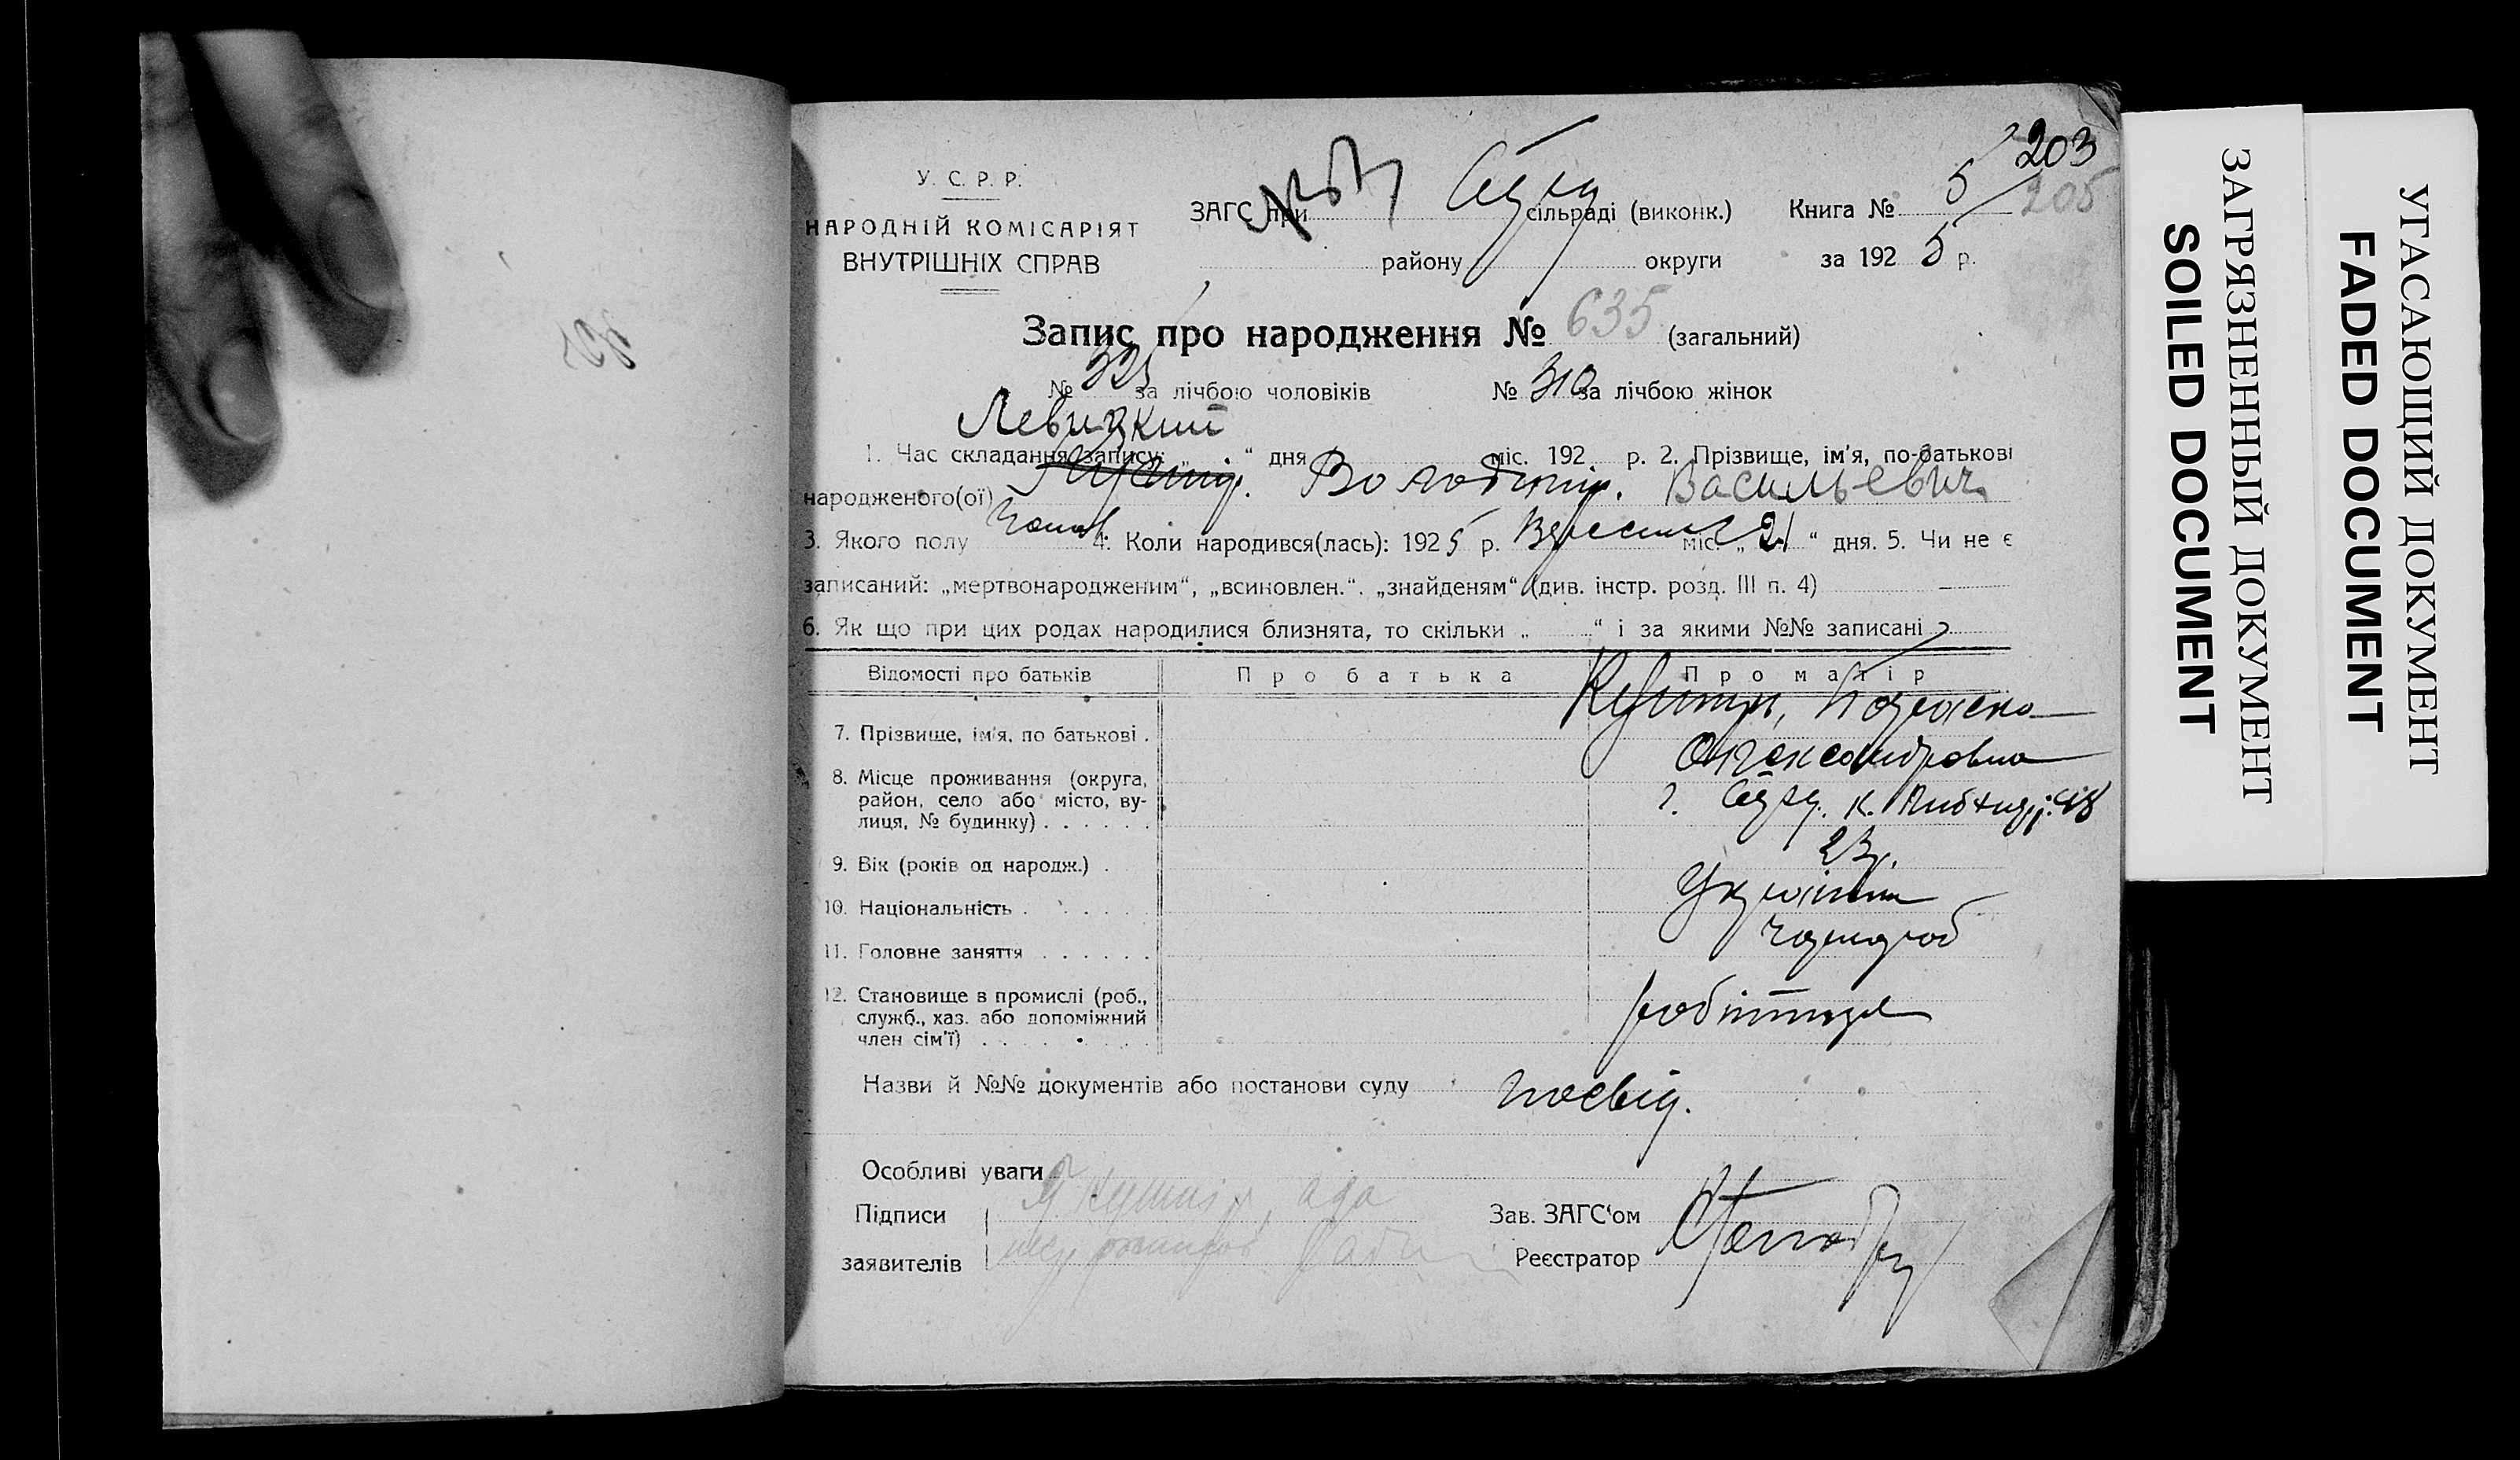 203
205
У. С. Р. Р.
НАРОДНІЙ КОМІСАРІЯТ
ВНУТРІШНІХ СПРАВ
ЗАГС при сільраді (виконк.) Книга № 5
району округи за 1925 р.
Запис про народження № 635 (загальний)
№ 325 за лічбою чоловіків № 310 за лічбою жінок
Левицкий
1. Час складання запису: „ “ дня міс. 192 р. 2. Прізвище, ім'я, по-батькові
народженого(ої) Володимир. Васильевич
3. Якого полу чолов 4. Коли народився(лась): 1925 р. Вересня міс. „ 21 “ дня. 5. Чи не є
записаний: „мертвонародженим“, „всиновлен.“. „знайденям“ (див. інстр. розд. III п. 4)
6. Як що при цих родах народилися близнята, то скільки „ “ і за якими №№ записані
Відомості про батьків Про батька Про матір
7. Прізвище, ім'я, по батькові . Кушнір,
Олександровна
8. Місце проживання (округа,
район, село або місто, ву-
лиця, № будинку) . . . . . .
9. Вік (років од народж.) . 23 р.
10. Національність . . . . . Українка
11. Головне заняття . . . . . .
12. Становище в промислі (роб.,
служб., хаз. або допоміжний
член сім'ї) . . . . . . робітниця
Назви й №№ документів або постанови суду посвід.
Особливі уваги
Підписи Кушнір,
заявителів
Зав. ЗАГС'ом
Реєстратор
ЗАГРЯЗНЕННЫЙ ДОКУМЕНТ
SOILED DOCUMENT
УГАСАЮЩИЙ ДОКУМЕНТ
FADED DOCUMENT